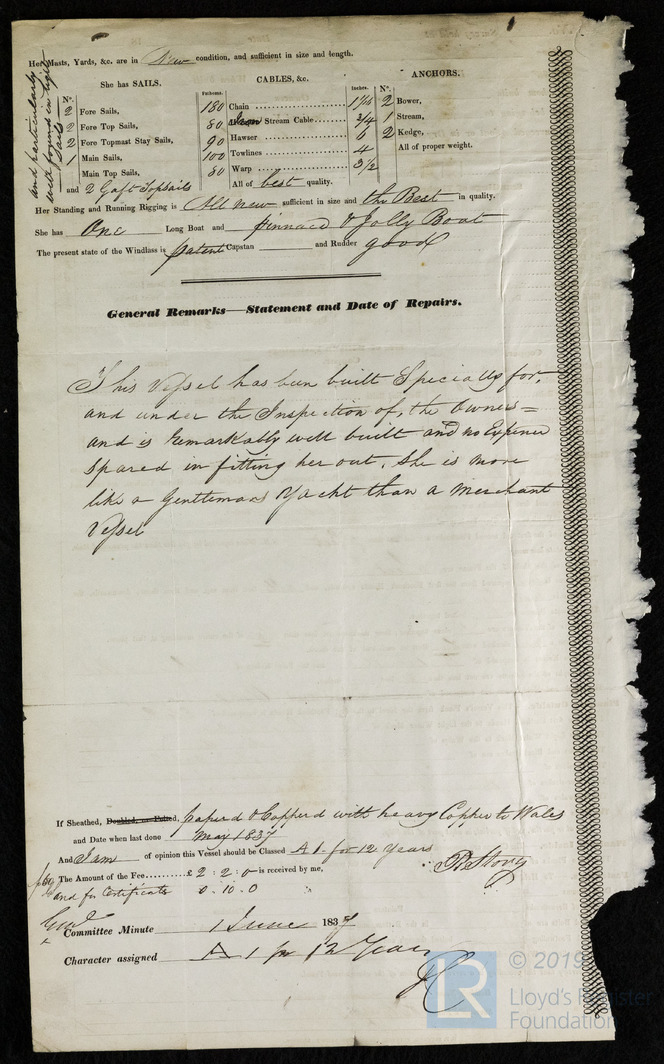 Her Masts, Yards, &c. are in New condition, and sufficient in size and length.
She has SAILS.
CABLES, &c.
ANCHORS.
and particularly
well found in light
Sails
N°.
Fathoms.
Inches.
N°.
2 Fore Sails,
180 Chain 1 1/16
2 Bower,
2 Fore Top Sails,
80 Stream Cable 3/4
1 Stream,
2 Fore Topmast Stay Sails,
90 Hawser 6
2 Kedge,
1 Main Sails,
100 Towlines 4
All of proper weight.
Main Top Sails,
80 Warp 3 1/2
and 2 Gaft Topsails
All of best quality.
Her Standing and Running Rigging is All New sufficient in size and the Best in quality.
She has One Long Boat and pinnace & Jolly Boat
The present state of the Windlass is patent Capstan and Rudder good
General Remarks—Statement and Date of Repairs.
This Vessel has been built Specially for,
and under the Inspection of, the Owners =
and is remarkably well built and no Expence
Spared in fitting her out. She is more
like a Gentlemans Yacht than a Merchant
Vessel
If Sheathed, Doubled, or Felted, paperd & Copperd with heavy Copper to Wales
and Date when last done May 1837
And I am of opinion this Vessel should be Classed A 1 for 12 Years
The Amount of the Fee £ 2 : 2 : 0 is received by me,
and for Certificate 0 . 10 . 0
Committee Minute 1 June 1837
Character assigned A 1 for 12 Years
LR
© 2019
Lloyd's Register
Foundation